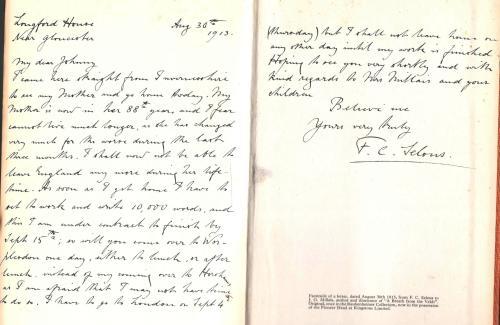 Longford House
Near Gloucester
Aug 30th
1913.
My dear Johnny
I came here straight from Worcestershire
to see my Mother and go home today. My
Mother is now in her 88th year, and I fear
cannot live much longer, as she has changed
very much for the worse during the last
three months. I shall now not be able to
leave England any more during her life-
time. As soon as I get home I have to
set to work and write 10,000 words, and
this I am under contract to finish by
Sept 15th; so will you come over to Wor-
plesdon one day, either to lunch, or after
lunch, instead of my coming over to Horsham,
as I am afraid that I may not have time
to do so. I have to go to London on Sept 4th
(Thursday) but I shall not leave home on
any other day until my work is finished
Hoping to see you very shortly and with
kind regards to Mrs Millais and your
children
Believe me
Yours very truly
F. C. Selous.
Facsimile of a letter, dated August 30th 1913, from F. C. Selous to
J. G. Millais, author and illustrator of "A Breath from the Veldt".
Original, once in the collection, now in the possession
of the Pioneer Head at Kingstons Limited.